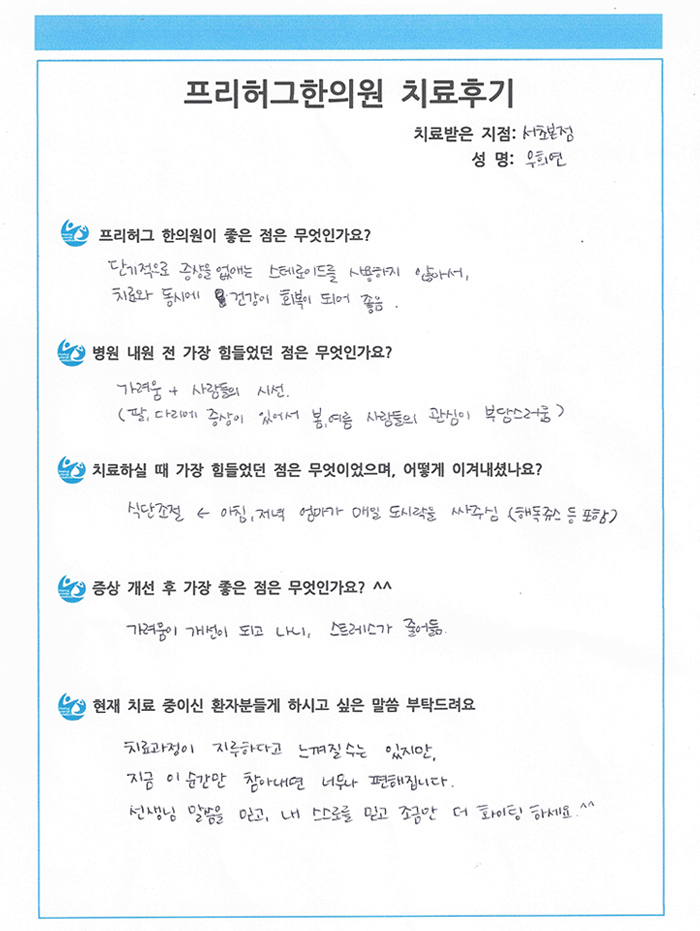 프리허그한의원 치료후기
치료받은 지점: 서초본점
성 명: 우희연
프리허그 한의원이 좋은 점은 무엇인가요?
단기적으로 증상을 없애는 스테로이드를 사용하지 않아서,
치료와 동시에 건강이 회복이 되어 좋음.
병원 내원 전 가장 힘들었던 점은 무엇인가요?
가려움 + 사람들의 시선.
(팔, 다리에 증상이 있어서 봄, 여름 사람들의 관심이 부담스러움)
치료하실 때 가장 힘들었던 점은 무엇이었으며, 어떻게 이겨내셨나요?
식단조절 ← 아침, 저녁 엄마가 매일 도시락을 싸주심 (해독쥬스 등 포함)
증상 개선 후 가장 좋은 점은 무엇인가요? ^^
가려움이 개선이 되고 나니, 스트레스가 줄어듦.
현재 치료 중이신 환자분들게 하시고 싶은 말씀 부탁드려요
치료과정이 지루하다고 느껴질수는 있지만,
지금 이 순간만 참아내면 너무나 편해집니다.
선생님 말씀을 믿고, 내 스스로를 믿고 조금만 더 화이팅 하세요.^^